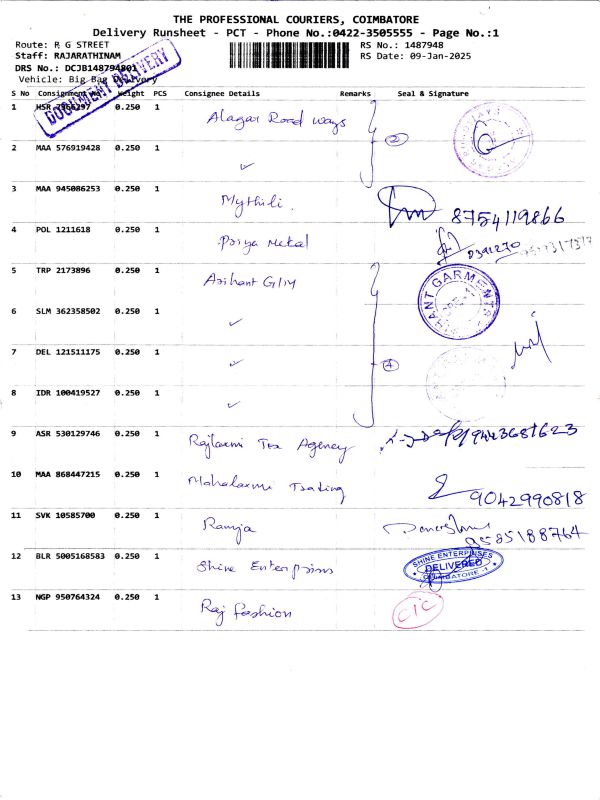 THE PROFESSIONAL COURIERS, COIMBATORE
Delivery Runsheet - PCT - Phone No.:0422-3505555 - Page No.:1
Route: R G STREET
RS No.: 1487948
Staff: RAJARATHINAM
RS Date: 09-Jan-2025
DRS No.: DCJB148794801
Vehicle: Big Bag Delivery
DOCUMENT DELIVERY
S No Consignment No Weight PCS Consignee Details Remarks Seal & Signature
1 HSR 0.250 1 Alagar Road Ways 2
2 MAA 576919428 0.250 1 ✓
3 MAA 945086253 0.250 1 Mythili. 8754119866
4 POL 1211618 0.250 1 Priya Metal
5 TRP 2173896 0.250 1 Arihant
ANT GARMENTS
6 SLM 362358502 0.250 1 ✓
7 DEL 121511175 0.250 1 ✓ 4
8 IDR 100419527 0.250 1 ✓
9 ASR 530129746 0.250 1 Rajlaxmi Tex Agency 9443681623
10 MAA 868447215 0.250 1 Mahalaxmi Trading 9042990818
11 SVK 10585700 0.250 1 Ramja 9585188764
12 BLR 5005168583 0.250 1 Shine Enterprises
SHINE ENTERPRISES
DELIVERED
COIMBATORE - 1
13 NGP 950764324 0.250 1 Raj fashion CIC